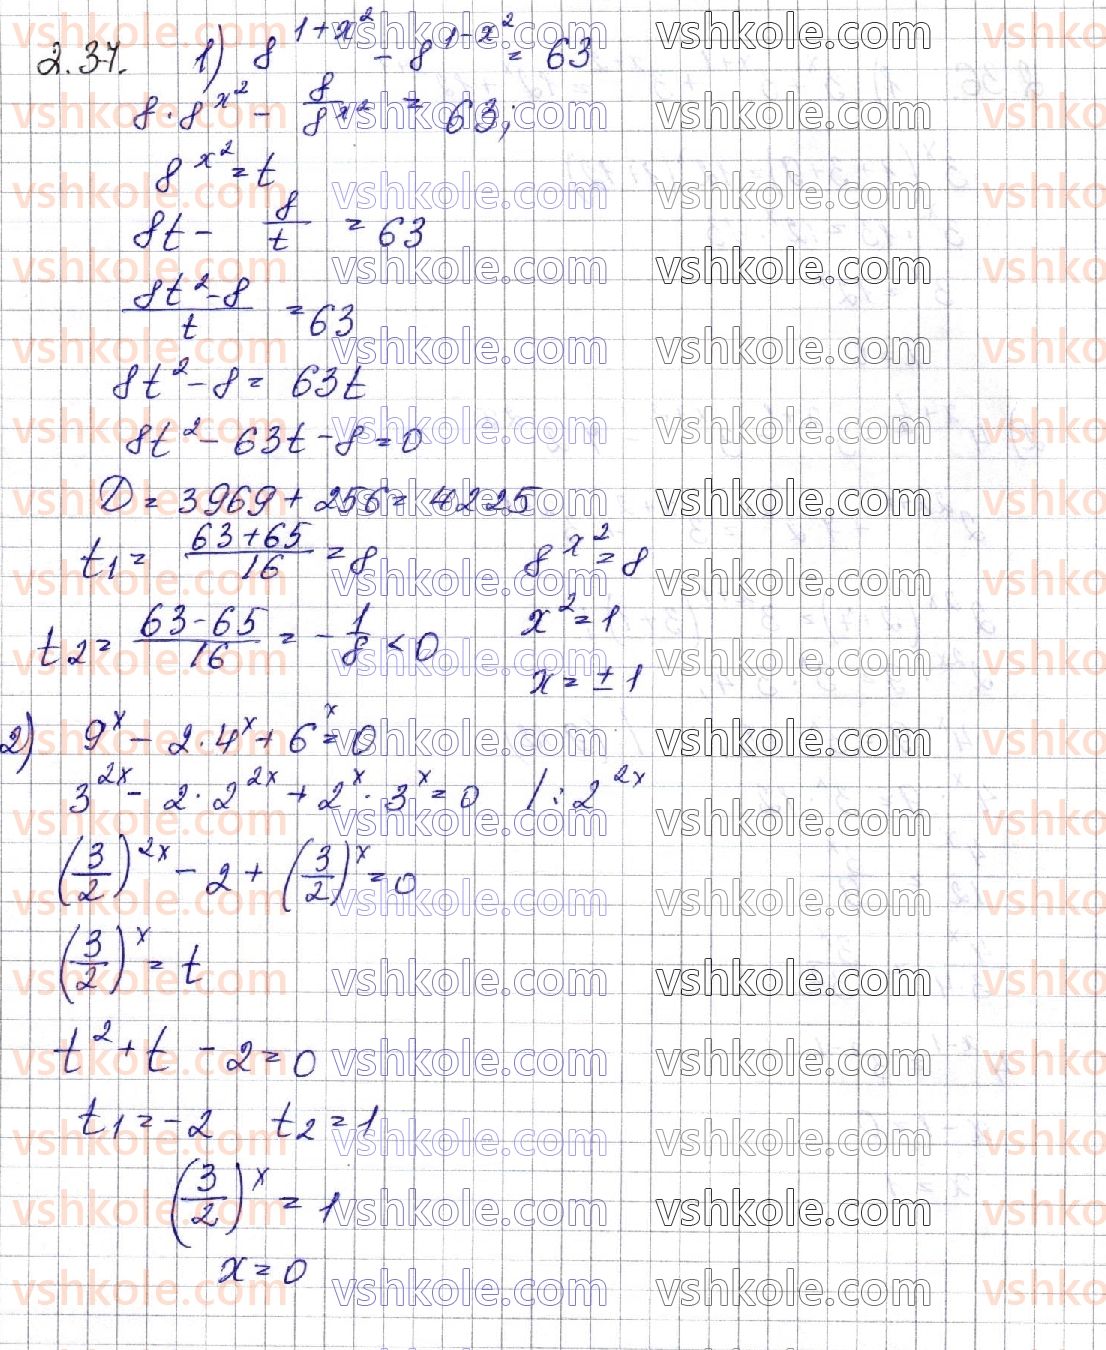 2.37. 1) 8^(1+x²) - 8^(1-x²) = 63
8·8^(x²) - 8/8^(x²) = 63;
8^(x²) = t
8t - 8/t = 63
(8t²-8)/t = 63
8t² - 8 = 63t
8t² - 63t - 8 = 0
D = 3969 + 256 = 4225
t1 = (63+65)/16 = 8    8^(x²) = 8
t2 = (63-65)/16 = -1/8 < 0    x² = 1
x = ±1
2) 9^x - 2·4^x + 6^x = 0
3^(2x) - 2·2^(2x) + 2^x·3^x = 0  /:2^(2x)
(3/2)^(2x) - 2 + (3/2)^x = 0
(3/2)^x = t
t² + t - 2 = 0
t1 = -2  t2 = 1
(3/2)^x = 1
x = 0
vshkole.com